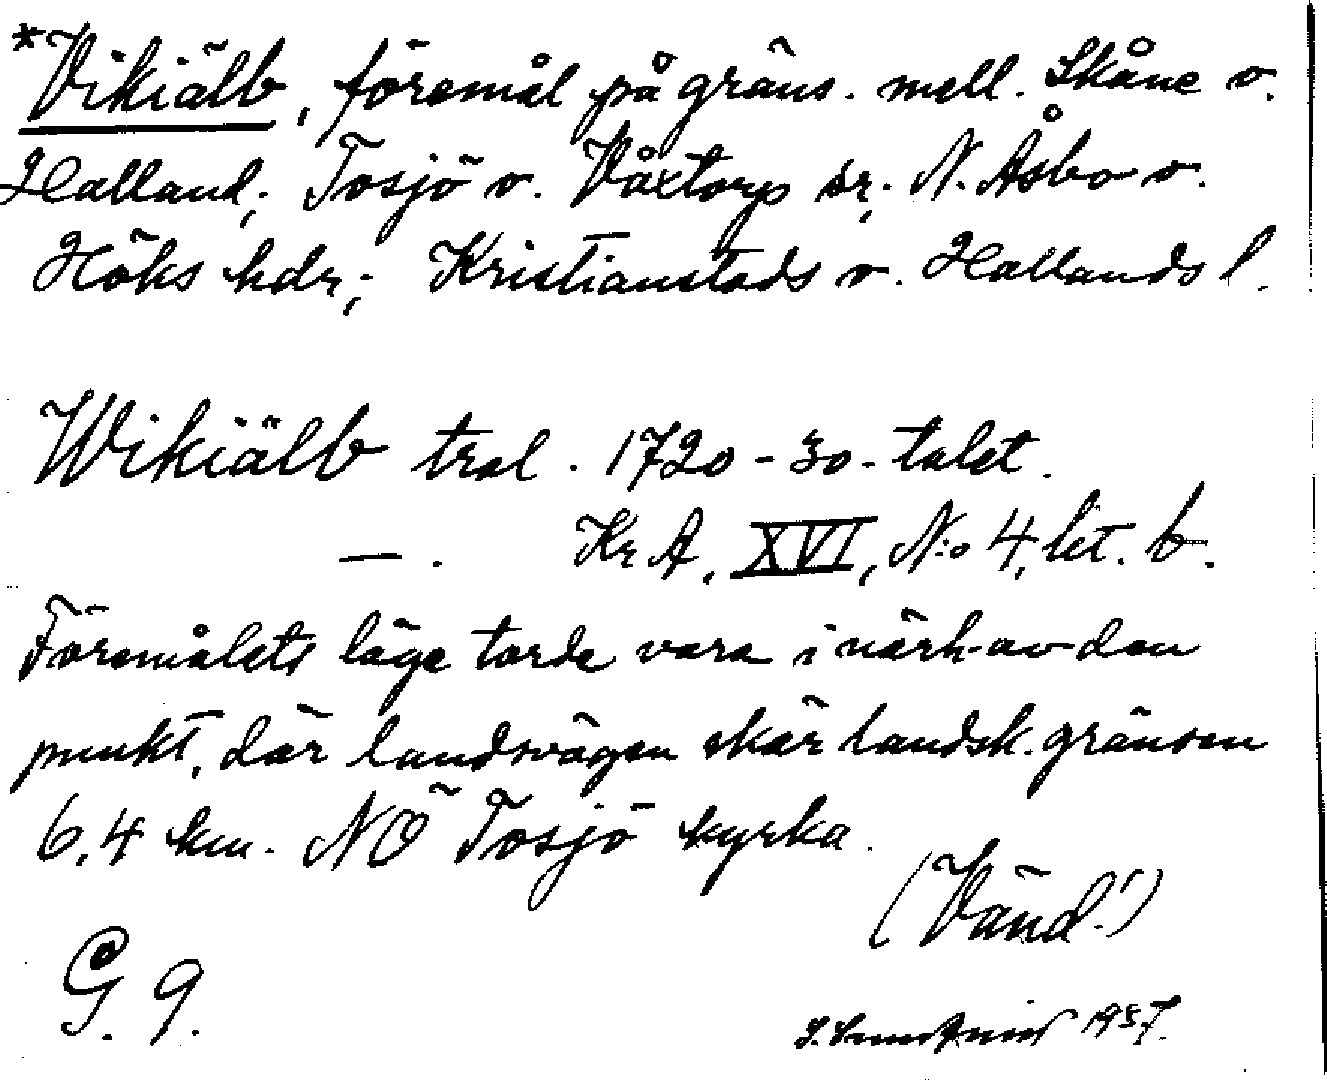 *Vikiälb, föremål på gräns. mell. Skåne o.
Halland; Tosjö o. Våxtorp sr; N. Åsbo o.
Höks hdr; Kristianstads o. Hallands l.
Wikiälb trol. 1720-30-talet.
—. KrA, XVI, N:o 4, lit. b.
Föremålets läge torde vara i närh. av den
punkt, där landsvägen skär landsk.gränsen
6,4 km. NÖ Tosjö kyrka.
(Vänd!)
G. 9.
1937.